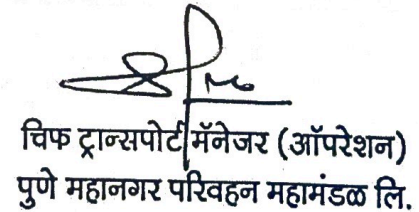 चिफ ट्रान्सपोर्ट मॅनेजर (ऑपरेशन)
पुणे महानगर परिवहन महामंडळ लि.